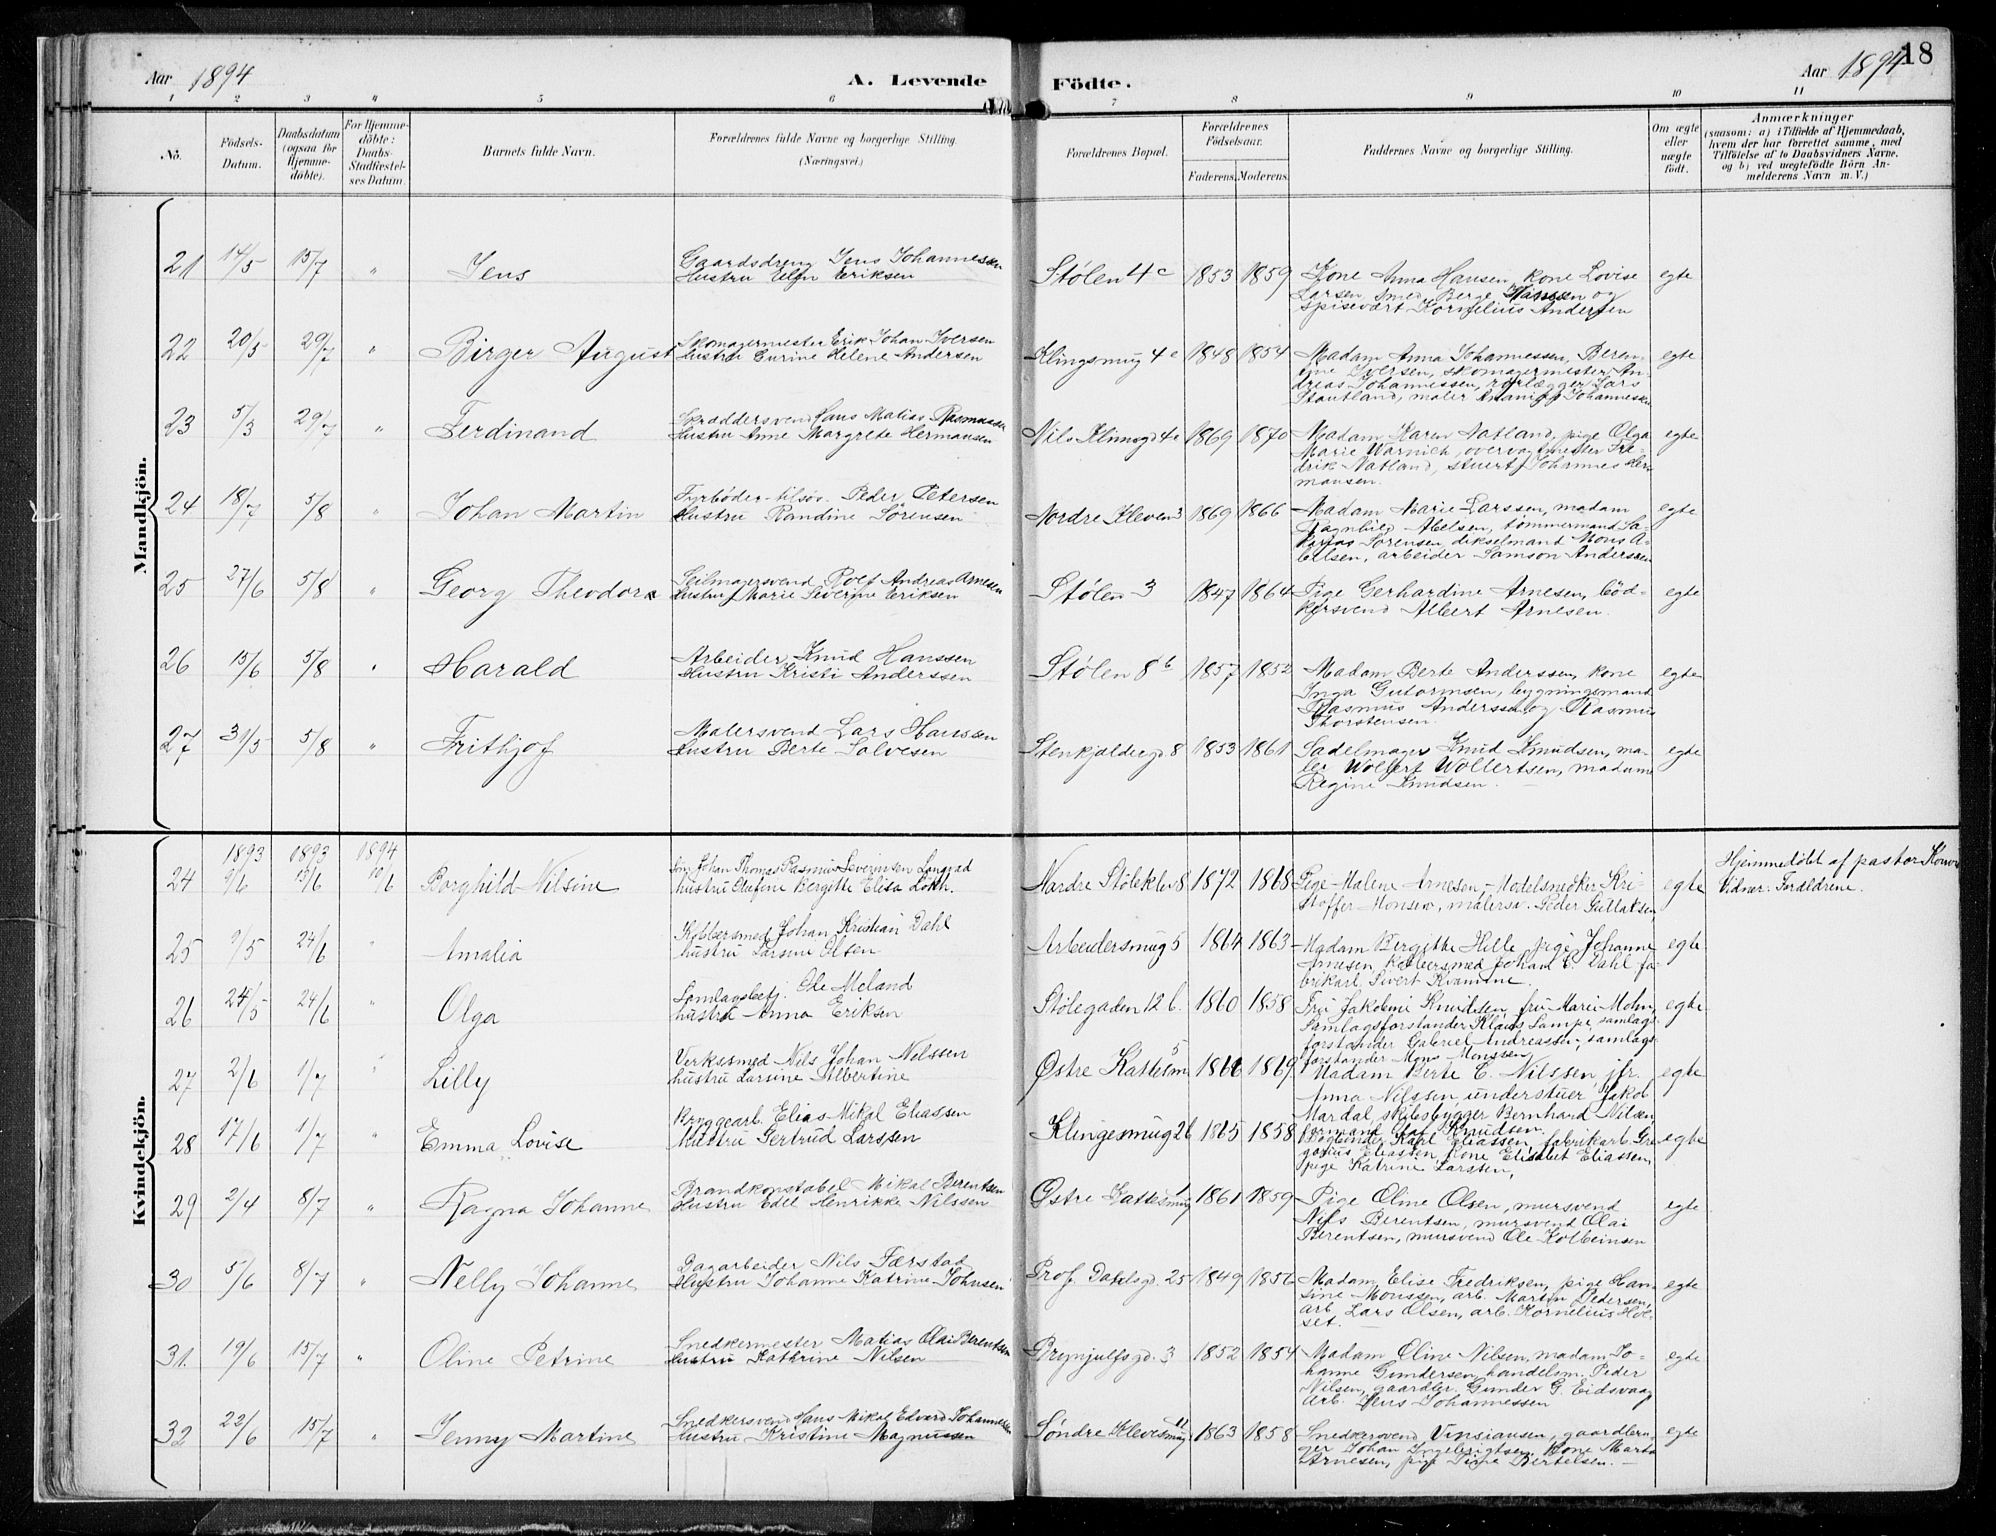 Aar 1894
A. Levende
Födte.
Aar 1894
18
1 2 3 " 5 6 7 8 9 10 11
No.
Födsels-Datum.
Daabsdatum (ogsaa for Hjemme-döbte).
For Hjemme-döbte: Daabs-Stadfæstel-ses Datum.
Barnets fulde Navn.
Forældrenes fulde Navne og borgerlige Stilling.
(Næringsvei.)
Forældrenes Bopæl.
Forældrenes Födselsaar.
Faderens. Moderens.
Faddernes Navne og borgerlige Stilling.
Om ægte eller uægte født.
Anmærkninger
(saasom: a) i Tilfælde af Hjemmedaab,
hvem der har forrettet samme, med
Tilföielse af to Daabsvidners Navne,
og b) ved uægtefödte Börn An-
melderens Navn m. V.)
Mandkjön.
21 14/5 15/7 " Jens
Gaardsdreng Jens Johannessen
Hustru Elen Eriksen
Stølen 4c 1853 1859
Kone Anna Hansen, kone Lovise
Larsen, smed Berge Hansen og
spisevært Kornelius Andersen
egte
22 20/5 29/7 " Birger August
Skomagermester Erik Johan Iversen
Hustru Gurine Helene Andersen
Klingsmug 4c 1848 1854
Madam Anna Johannessen, Beren-
tine Iversen, skomagermester An-
dreas Johannessen, rørlægger Lars
Stautland, maler Johannesen
egte
23 5/3 29/7 " Ferdinand
Skræddersvend Hans Matias Rasmussen
Hustru Anne Margrete Hermansen
Nils Klimsgd 4c 1869 1870
Madam Karen Natland, pige Olga
Marie Warnich, overvagtmester Fre-
drik Natland, stuert Johannes Her-
mansen.
egte
24 18/7 5/8 " Johan Martin
Fyrbøder tilsøs Peder Petersen
Hustru Randine Sørensen
Nordre Kleven 3 1869 1866
Madam Marie Larssen, madam
Ragnhild Abelsen, tømmermand Za-
karias Sørensen, dikselmand Mons A-
belsen, arbeider Samson Anderssen
egte
25 27/6 5/8 " Georg Theodor
Seilmagersvend Rolf Andreas Arnesen
Hustru Marie Severine Eriksen
Stølen 3 1847 1864
Pige Gerhardine Arnesen, bød-
kersvend Albert Arnesen.
egte
26 15/6 5/8 " Harald
Arbeider Knud Hanssen
Hustru Kristi Anderssen
Stølen 8b 1857 1852
Madam Berte Anderssen, kone
Inga Gutormsen, bygningsmand
Rasmus Anderssen og Rasmus
Thorstensen.
egte
27 31/5 5/8 " Frithjof
Malersvend Lars Hanssen
Hustru Berte Salvesen
Stenkjeldergd. 8 1853 1861
Sadelmager Knud Knudsen, ma-
ler Wollert Wollertsen, madam
Regine Knudsen.
egte
Kvindekjön.
1893 1893 1894
24 9/6 15/6 10/6 Borghild Nilsine
Johan Thomas Rasmus Severinsen
hustru Olafine Bergitte Elisa
Nordre Stølekleven 8 1872 1868
Pige Malene Arnesen, Modelsnedker Kri-
stoffer Monsen, malersv. Peder Gullaksen
egte
Hjemmedøbt af pastor
Vidner: Forældrene.
25 9/5 24/6 " Amalia
Kobbersmed Johan Kristian Dahl
hustru Larsine Olsen
Arbeidersmug 5 1864 1863
Madam Bergitte Hille, pige Johanne
Arnesen, kobbersmed Johan C. Dahl, fa-
brikarb. Sivert Kvamme.
egte
26 24/5 24/6 " Olga
Samlagsbetj. Ole Meland
hustru Anna Eriksen
Stølegaden 12 b. 1860 1858
Fru Jakobine Knudsen, fru Marie Mohn,
Samlagsforstander Klaus Lampe, samlags-
forstander Gabriel Andreassen, samlags-
forstander Mons Monssen
egte
27 2/6 1/7 " Lilly
Verkssmed Nils Johan Nilssen
hustru Larsine Albertine
Østre Kattesm 5 1869
Madam Berte C. Nilssen, jfr.
Anna Nilssen, understuer Jakob
Mardal, skibsbygger Bernhard Nilsen,
formand Olaf Knudsen.
egte
28 17/6 1/7 " Emma Lovise
Bryggearb. Elias Mikal Eliassen
Hustru Gertrud Larssen
Klingesmug 2b 1865 1858
Bogbinder Karl Eliassen, fabrikarb. Gre-
gorius Eliassen, kone Elisabet Eliassen,
pige Katrine Larssen,
egte
29 2/4 8/7 " Ragna Johanne
Brandkonstabel Mikal Berentsen
Hustru Edle Henrikke Nilssen
Østre Kattesmug 1 1861 1859
Pige Oline Olsen, mursvend
Nils Berentsen, mursvend Olai
Berentsen, mursvend Ole Kolbeinsen
egte
30 5/6 8/7 " Nelly Johanne
Dagarbeider Nils Færstad
Hustru Johanne Katrine Johnsen
Prof. Dahlsgd. 25 1849 1856
Madam Elise Fredriksen, pige Han-
sine Monssen, arb. Martin Pedersen,
arb. Lars Olsen, arb. Kornelius Hol-
set.
egte
31. 19/6 15/7 " Oline Petrine
Snedkermester Matias Olai Berentsen
Hustru Kathrine Nilsen
Brynjulfsgd. 3 1852 1854
Madam Oline Nilsen, madam Jo-
hanne Gundersen, handelsm. Peder
Nilsen, gaardbr. Gunder G. Eidsvaag
Arb. Jens Johannessen
egte
32 22/6 15/7 " Jenny Martine
Snedkersvend Hans Mikal Edvard Johannessen
Hustru Kristine Magnussen
Søndre Klevesmug 11 1863 1858
Snedkersvend Vinsiansen, gaardbru-
ger Johan Ingebrigtsen, Kone Marta
Arnesen, pige Sina Bertelsen.
egte